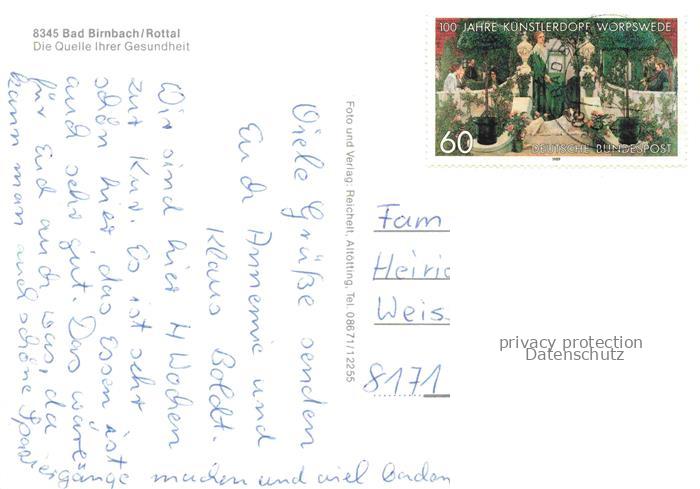 8345 Bad Birnbach/Rottal
Die Quelle Ihrer Gesundheit
100 JAHRE KÜNSTLERDORF WORPSWEDE
60
DEUTSCHE BUNDESPOST
1989
Viele Grüße senden
Euch Annemie und
Klaus Boldt.
Wir sind hier 4 Wochen
zur Kur. Es ist sehr
schön hier das Essen ist
auch sehr gut. Das wäre
für Euch auch was, da
kann man auch schöne Spaziergänge
machen und viel baden
Foto und Verlag: Reichelt, Altötting, Tel. 08671/12255
Fam
Heinric
Weis
8171
privacy protection
Datenschutz